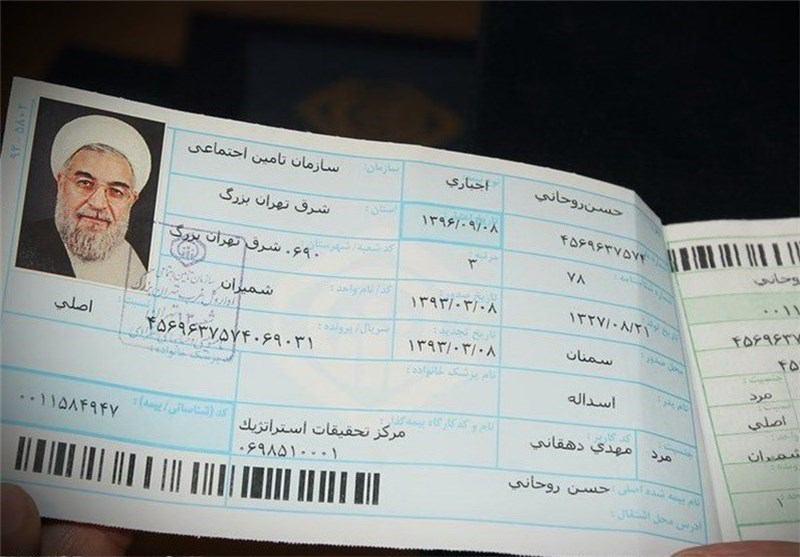 حسن‌روحاني
اجباري
سازمان:
سازمان تامین اجتماعی
۴۵۶۹۶۳۷۵۷۴
۱۳۹۶/۰۹/۰۸
استان:
شرق تهران بزرگ
۷۸
مرتبه
۳
کد شعبه/ شهرستان
۰۶۹۰ شرق تهران بزرگ
۱۳۲۷/۰۸/۲۱
تاریخ صدور:
۱۳۹۳/۰۳/۰۸
کد/ نام واحد:
شمیران
محل صدور:
سمنان
تاریخ تجدید:
۱۳۹۳/۰۳/۰۸
سریال/ پرونده:
۴۵۶۹۶۳۷۵۷۴۰۶۹۰۳۱
اصلي
نام پدر:
اسداله
نام پزشک خانواده:
کد پزشک خانواده:
جنسیت:
مرد
کد کاربر:
مهدي دهقاني
نام و کدکارگاه بیمه‌گذار:
مرکز تحقیقات استراتژیك
۰۶۹۸۵۱۰۰۰۱
کد (شناسائی/ بیمه):
۰۰۱۱۵۸۴۹۴۷
نام بیمه شده اصلی:
حسن روحاني
آدرس محل اشتغال:
جنسیت:
مرد
اصلي
شمیران